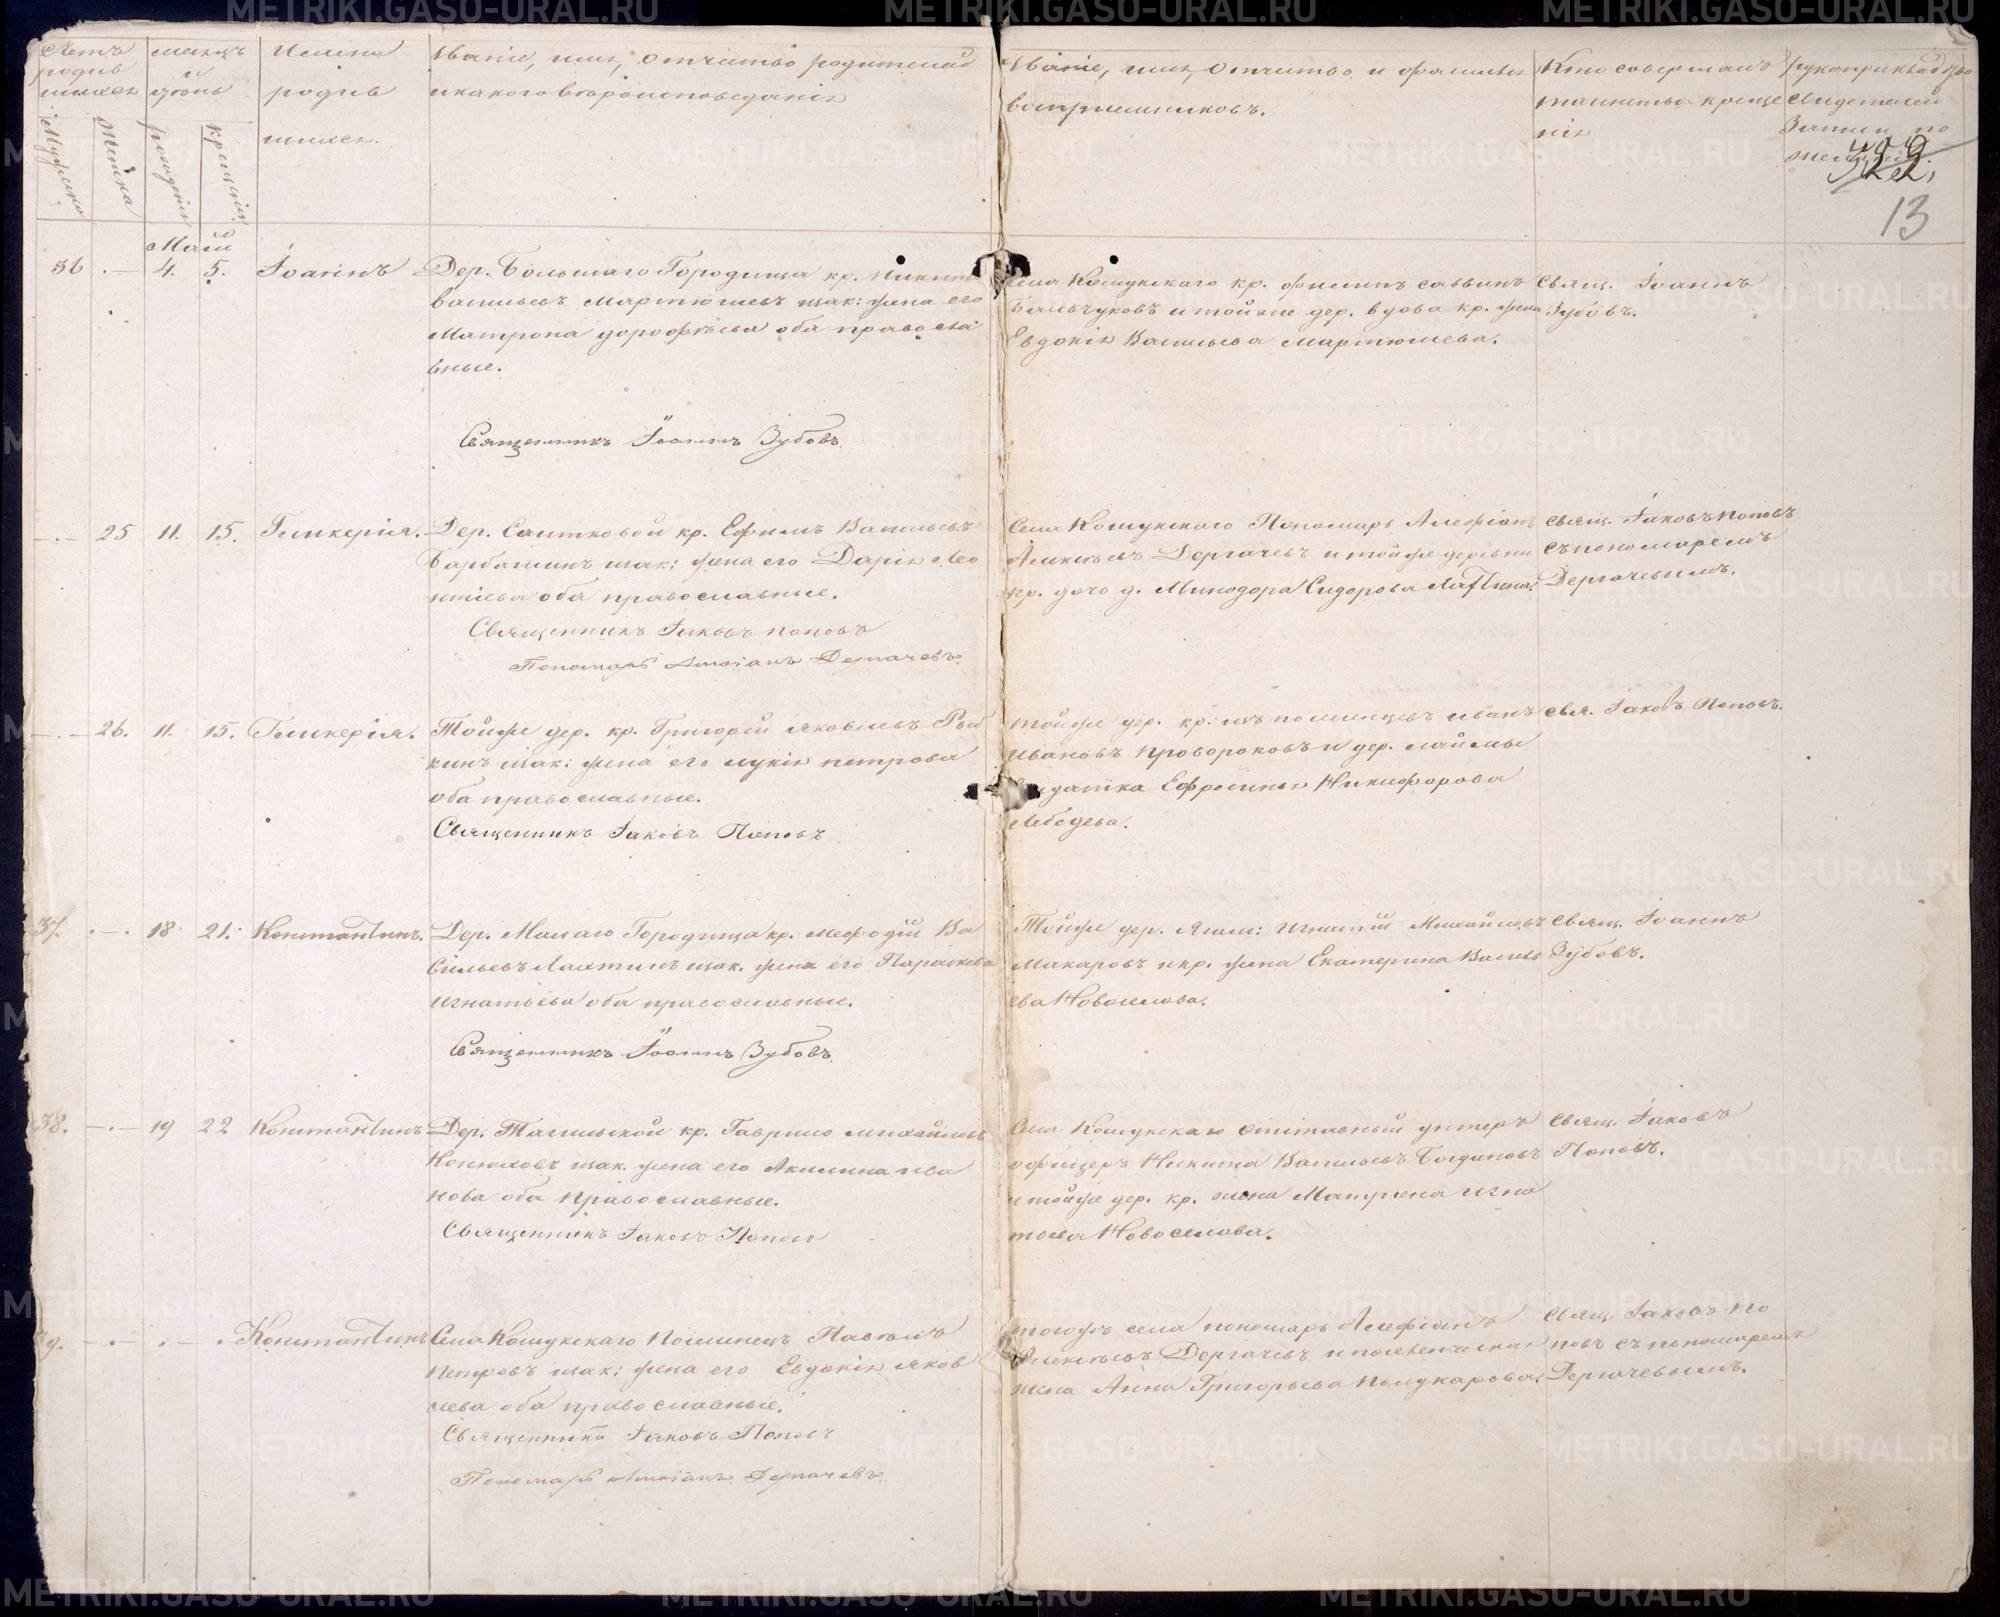 METRIKI.GASO-URAL.RU
Счетъ родившихся
Мужеска
Женска
месяцъ и день
рожденія
крещенія
Имена родившихся.
Званіе, имя, отчество родителей
и какого вѣроисповеданія
Званіе, имя, отчество и фамилія
воспріемниковъ.
Кто совершалъ
таинство креще
нія
рукоприкладство
свидетелей
Записи по
желанію.
13
Май
36 4. 5. Іоаннъ
Дер. Большаго Городища кр. Никита
Васильевъ Мартюшевъ зак: жена его
Матрона Дорофѣева оба православ
вные.
Священникъ Іоаннъ Зубовъ.
Села Кошукскаго кр. Филипъ Саввинъ
Бальчуковъ и тойже дер. вдова кр. жена
Евдокія Васильева Мартюшева.
Свящ. Іоаннъ
Зубовъ.
25 11. 15. Гликерія.
Дер. Саитковой кр. Ефимъ Васильевъ
Барбашинъ зак: жена его Дарія Лео
нтіева оба православные.
Священникъ Іаковъ Поповъ
Пономарь Дергачевъ.
Села Кошукскаго Пономарь
Дергачевъ и тойже деревни
кр. дочь д. Минодора Сидорова Лаптина.
Свящ. Іаковъ Поповъ
съ пономаремъ
Дергачевымъ.
26. 11. 15. Гликерія.
Тойже дер. кр. Григорій Яковлевъ Рыб
кинъ зак: жена его Лукія Петрова
оба православные.
Священникъ Іаковъ Поповъ
Тойже дер. кр. изъ поселенцевъ Иванъ
Ивановъ Провороковъ и дер.
солдатка Ефросинья Никифорова
Лебедева.
Свя. Іаковъ Поповъ.
37. 18 21. Константинъ.
Дер. Малаго Городища кр. Мефодій Ва
сильевъ Лахтинъ зак. жена его Параскева
Игнатьева оба православные.
Священникъ Іоаннъ Зубовъ.
Тойже дер. Игнатій Михайловъ
Макаровъ и кр. жена Екатерина Василь
ева Новоселова.
Свящ. Іоаннъ
Зубовъ.
38. 19 22 Константинъ
Дер. Тагильской кр. Гаврило Михайловъ
Конюховъ зак. жена его Акилина Ива
нова оба православные.
Священникъ Іаковъ Поповъ
Села Кошукскаго отставный унтеръ
офицеръ Никита Васильевъ Богдановъ
и тойже дер. кр. жена Матрена Игна
тьева Новоселова.
Свящ. Іаковъ
Поповъ.
39. Константинъ
Села Кошукскаго Поселенецъ Павелъ
Петровъ зак: жена его Евдокія Яков
лева оба православные.
Священникъ Іаковъ Поповъ
Пономарь Дергачевъ.
тогожъ села пономарь
Дергачевъ и поселенческая
жена Анна Григорьева Поликарпова.
Свящ. Іаковъ По
повъ съ пономаремъ
Дергачевымъ.